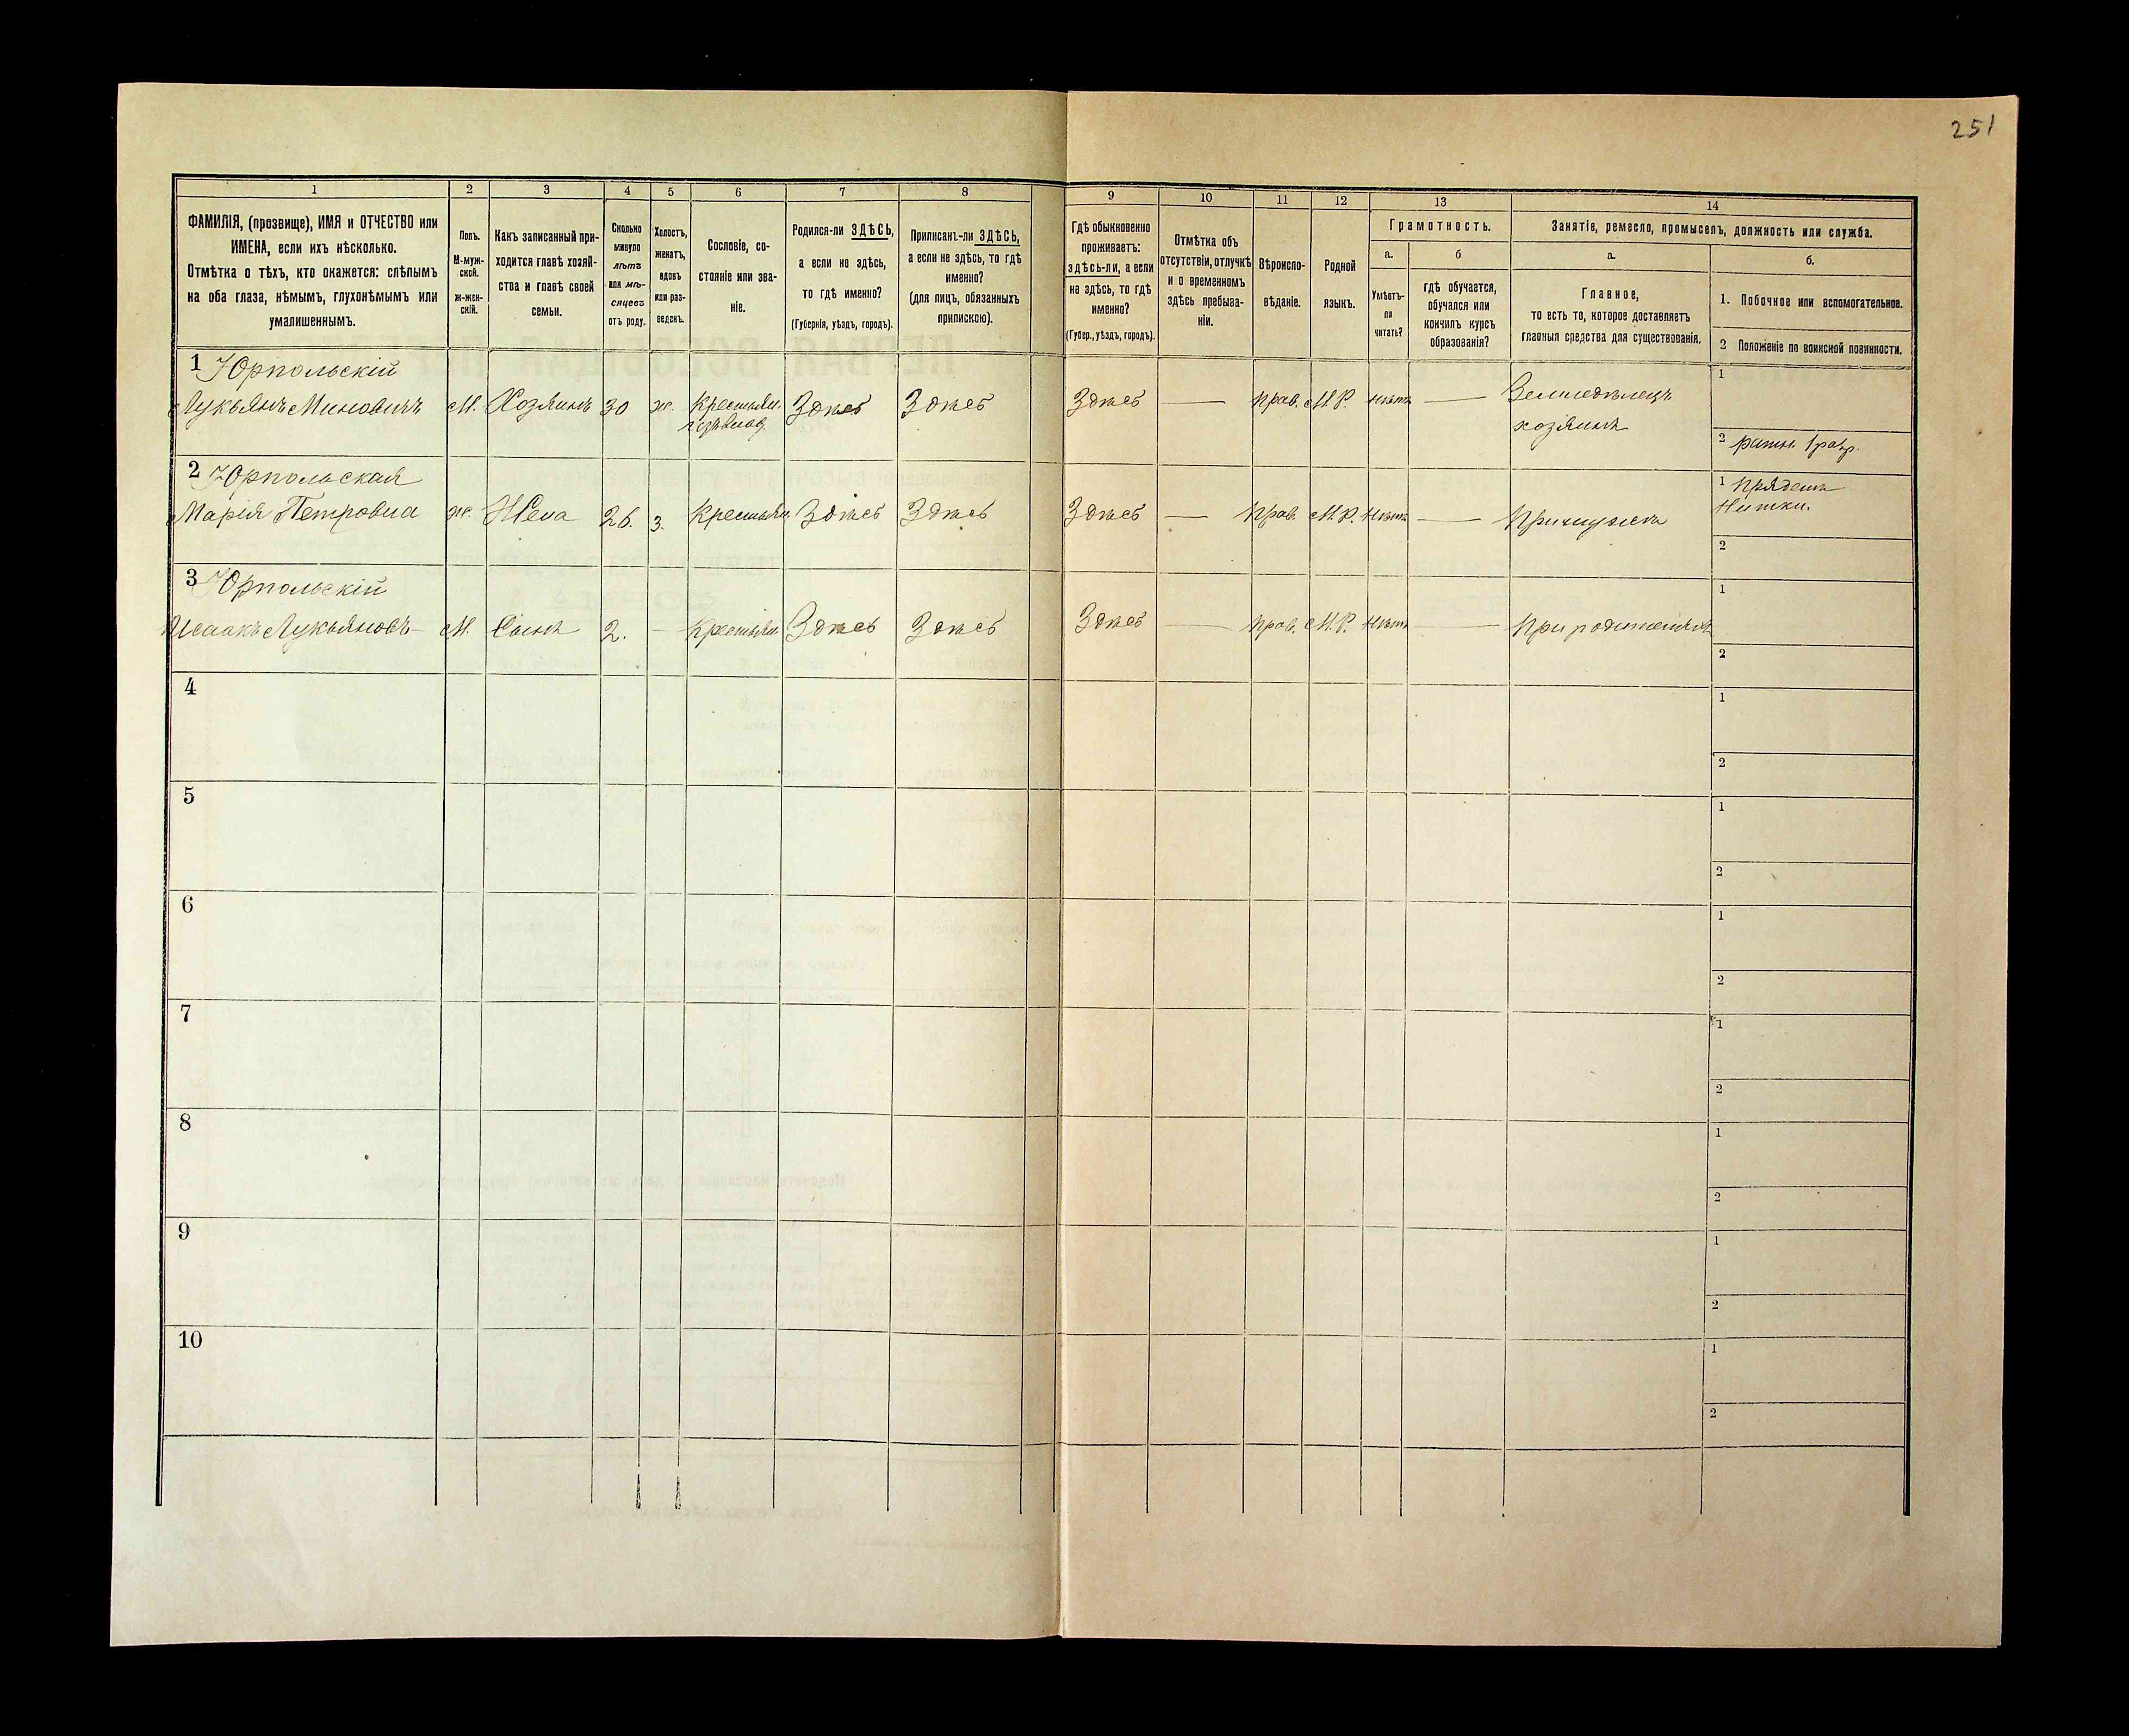 251
1 2 3 4 5 6 7 8 9 10 11 12 13 14
ФАМИЛІЯ, (прозвище), ИМЯ и ОТЧЕСТВО или
ИМЕНА, если ихъ нѣсколько.
Отмѣтка о тѣхъ, кто окажется: слѣпымъ
на оба глаза, нѣмымъ, глухонѣмымъ или
умалишеннымъ.
Полъ.
М-муж-
ской.
ж-жен-
скій.
Какъ записанный при-
ходится главѣ хозяй-
ства и главѣ своей
семьи.
Сколько
минуло
лѣтъ
или мѣ-
сяцевъ
отъ роду.
Холостъ,
женатъ,
вдовъ
или раз-
веденъ.
Сословіе, со-
стояніе или зва-
ніе.
Родился-ли ЗДѢСЬ,
а если не здѣсь,
то гдѣ именно?
(Губернія, уѣздъ, городъ).
Приписанъ-ли ЗДѢСЬ,
а если не здѣсь, то гдѣ
именно?
(для лицъ, обязанныхъ
припискою).
Гдѣ обыкновенно
проживаетъ:
здѣсь-ли, а если
не здѣсь, то гдѣ
именно?
(Губер., уѣздъ, городъ).
Отмѣтка объ
отсутствіи, отлучкѣ
и о временномъ
здѣсь пребыва-
ніи.
Вѣроиспо-
вѣданіе.
Родной
языкъ.
Грамотность.
а.
Умѣетъ-
ли
читать?
б
гдѣ обучается,
обучался или
кончилъ курсъ
образованія?
Занятіе, ремесло, промыселъ, должность или служба.
а.
Главное,
то есть то, которое доставляетъ
главныя средства для существованія.
б.
1. Побочное или вспомогательное.
2 Положеніе по воинской повинности.
1 Юрпольскій
Лукьянъ Миновичъ М. Хозяинъ 30 ж. Крестьян. Здѣсь Здѣсь Здѣсь — прав. М.Р. нѣтъ — Земледѣлецъ
хозяинъ
1
2 ратн. 1 разр.
2 Юрпольская
Марія Петровна ж. Жена 26. З. Крестьян. Здѣсь Здѣсь Здѣсь — прав. М.Р. Нѣтъ — При мужѣ
1 Прядетъ
Нитки.
2
3 Юрпольскій
Исаакъ Лукьяновъ М. Сынъ 2. — Крестьян. Здѣсь Здѣсь Здѣсь — прав. М.Р. Нѣтъ — При родителяхъ
1
2
4
1
2
5
1
2
6
1
2
7
1
2
8
1
2
9
1
2
10
1
2